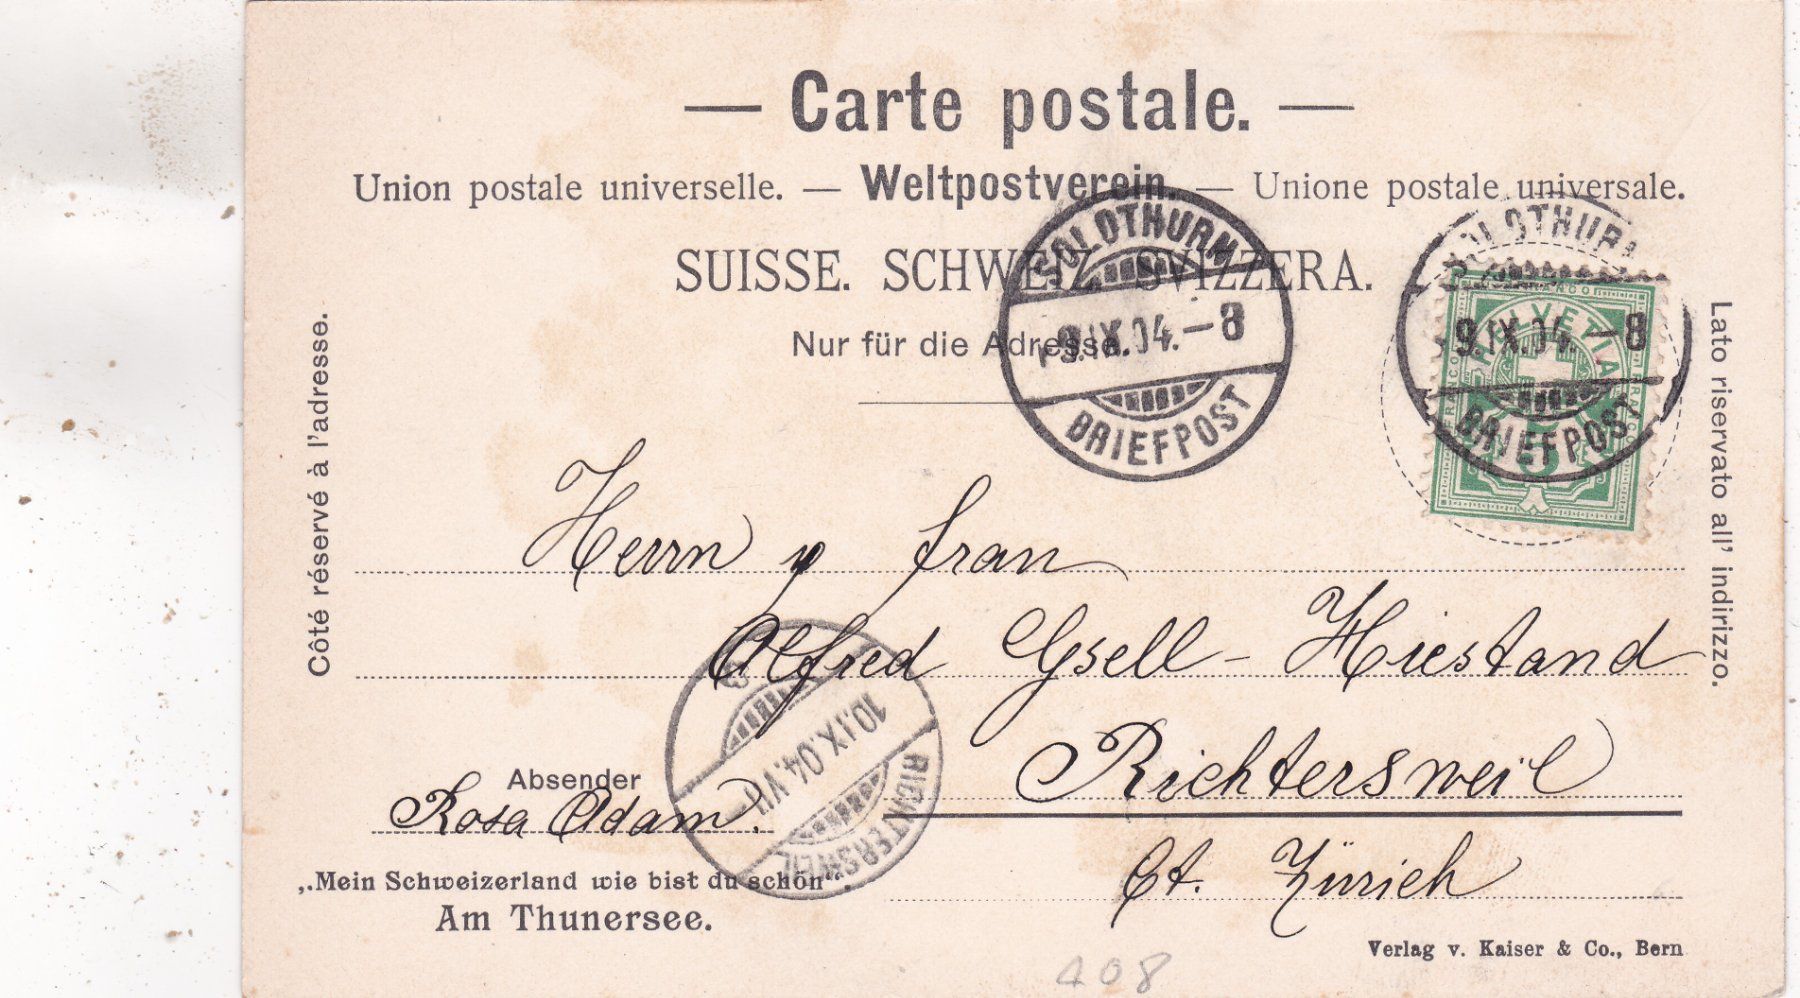 — Carte postale. —
Union postale universelle. — Weltpostverein. — Unione postale universale.
SUISSE. SCHWEIZ. SVIZZERA.
Nur für die Adresse.
Côté réservé à l'adresse.
Lato riservato all' indirizzo.
SOLOTHURN
9.IX.04.—8
BRIEFPOST
SOLOTHURN
9.IX.04.—8
BRIEFPOST
FRANCO
HELVETIA
FRANCO
FRANCO
5
Herrn y Frau
Alfred Gsell-Hiestand
Richtersweil
Ct. Zürich
10.IX.04.VII
RICHTERSWEIL
Absender
Rosa Adam.
„Mein Schweizerland wie bist du schön“.
Am Thunersee.
Verlag v. Kaiser & Co., Bern
408